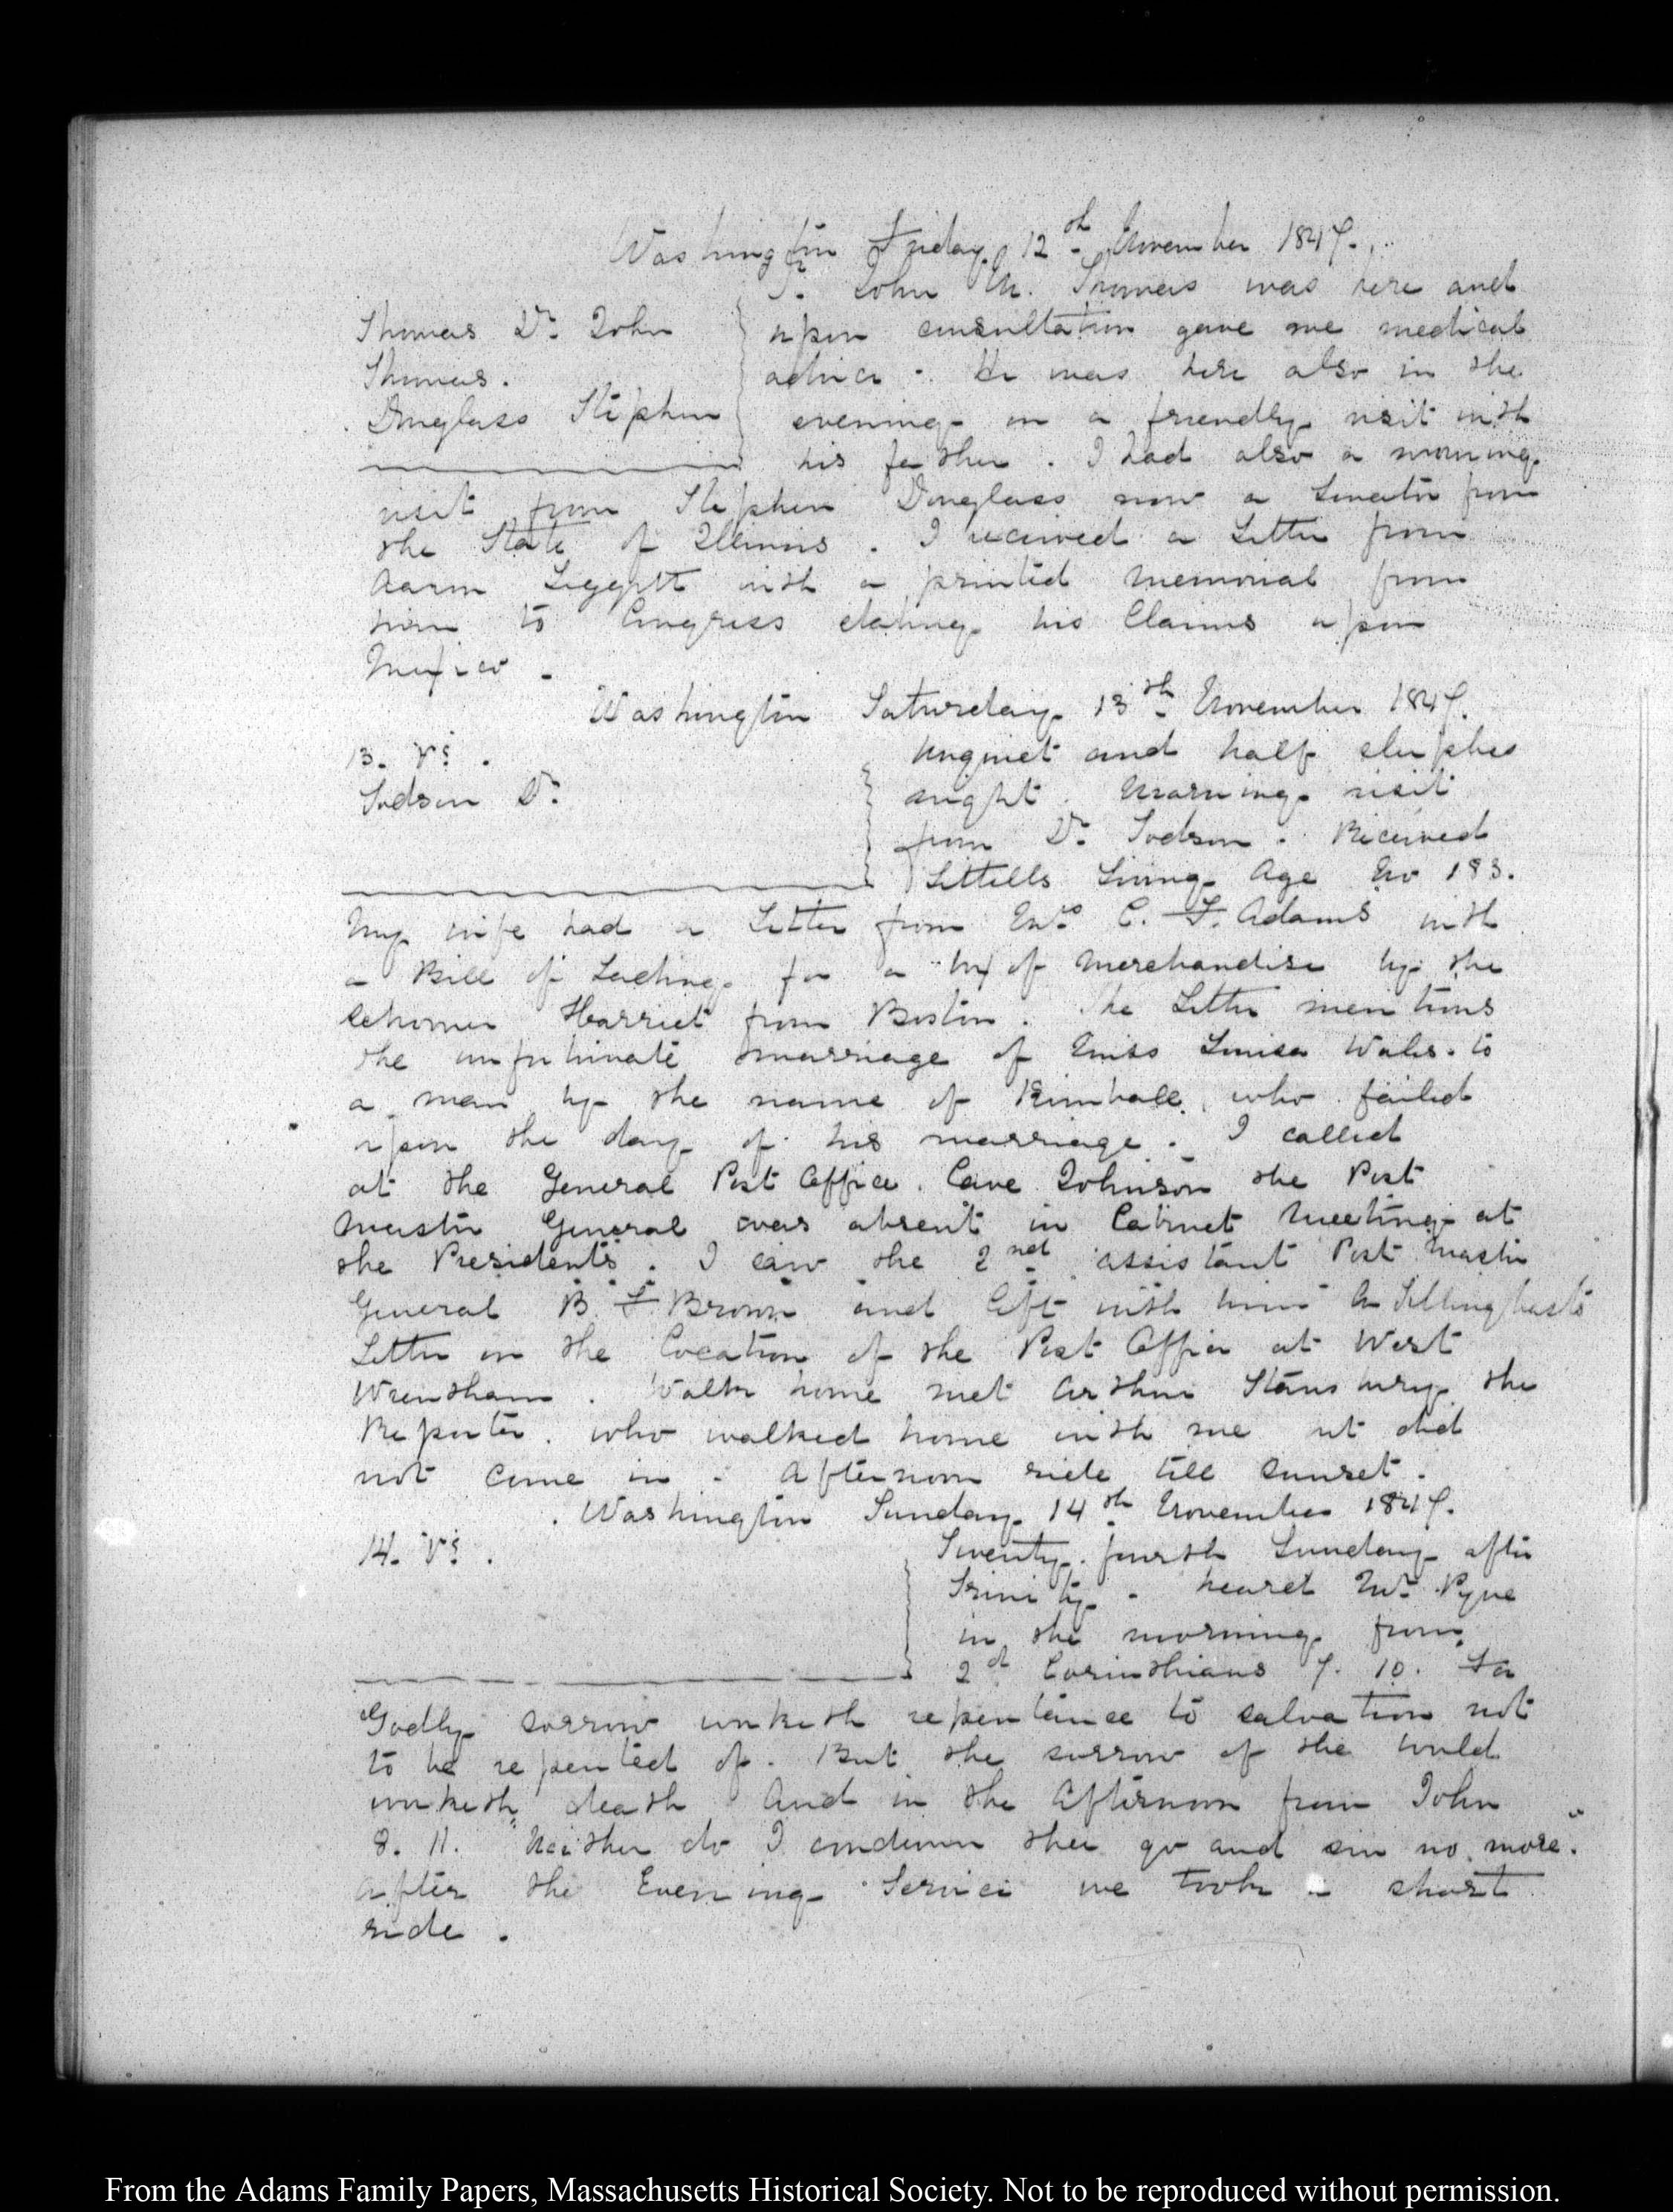 Washington Friday 12th November 1847.
Dr. John M. Thomas was here and
Thomas Dr. John
upon consultation gave me medical
Thomas.
advice. He was here also in the
Douglass Stephen
evening on a friendly visit with
his father. I had also a morning
visit from Stephen Douglass now a Senator from
the State of Illinois. I received a Letter from
Aaron Leggett with a printed memorial from
him to Congress stating his Claims upon
Mexico.
Washington Saturday 13th November 1847.
13. V:
Unquiet and half sleepless
Dr.
night. Morning visit
from Dr. Received
Littells Living Age No 183.
My wife had a Letter from Mrs C. F. Adams with
a Bill of Lading for a box of Merchandise by the
Schooner Harriet from Boston. The Letter mentions
the unfortunate marriage of Miss Louisa Wales. to
a man by the name of Kimball, who failed
upon the day of his marriage. I called
at the General Post Office. Cave Johnson the Post
Master General was absent in Cabinet Meeting at
the Presidents. I saw the 2nd assistant Post Master
General Brown and left with him A Tillinghasts
Letter on the Location of the Post Office at West
Wrentham. Walk home met Arthur Stansbury the
Reporter. who walked home with me but did
not come in. Afternoon ride till Sunset.
Washington Sunday 14th November 1847.
14. V:
Twenty. fourth Sunday after
Trinity. heard Mr. Pyne
in the morning from
2d Corinthians 7. 10. For
Godly sorrow worketh repentance to salvation not
to be repented of. But the sorrow of the world
worketh death And in the Afternoon from John
8. 11. "Neither do I condemn thee go and sin no more."
After the Evening Service we took a short
ride.
From the Adams Family Papers, Massachusetts Historical Society. Not to be reproduced without permission.